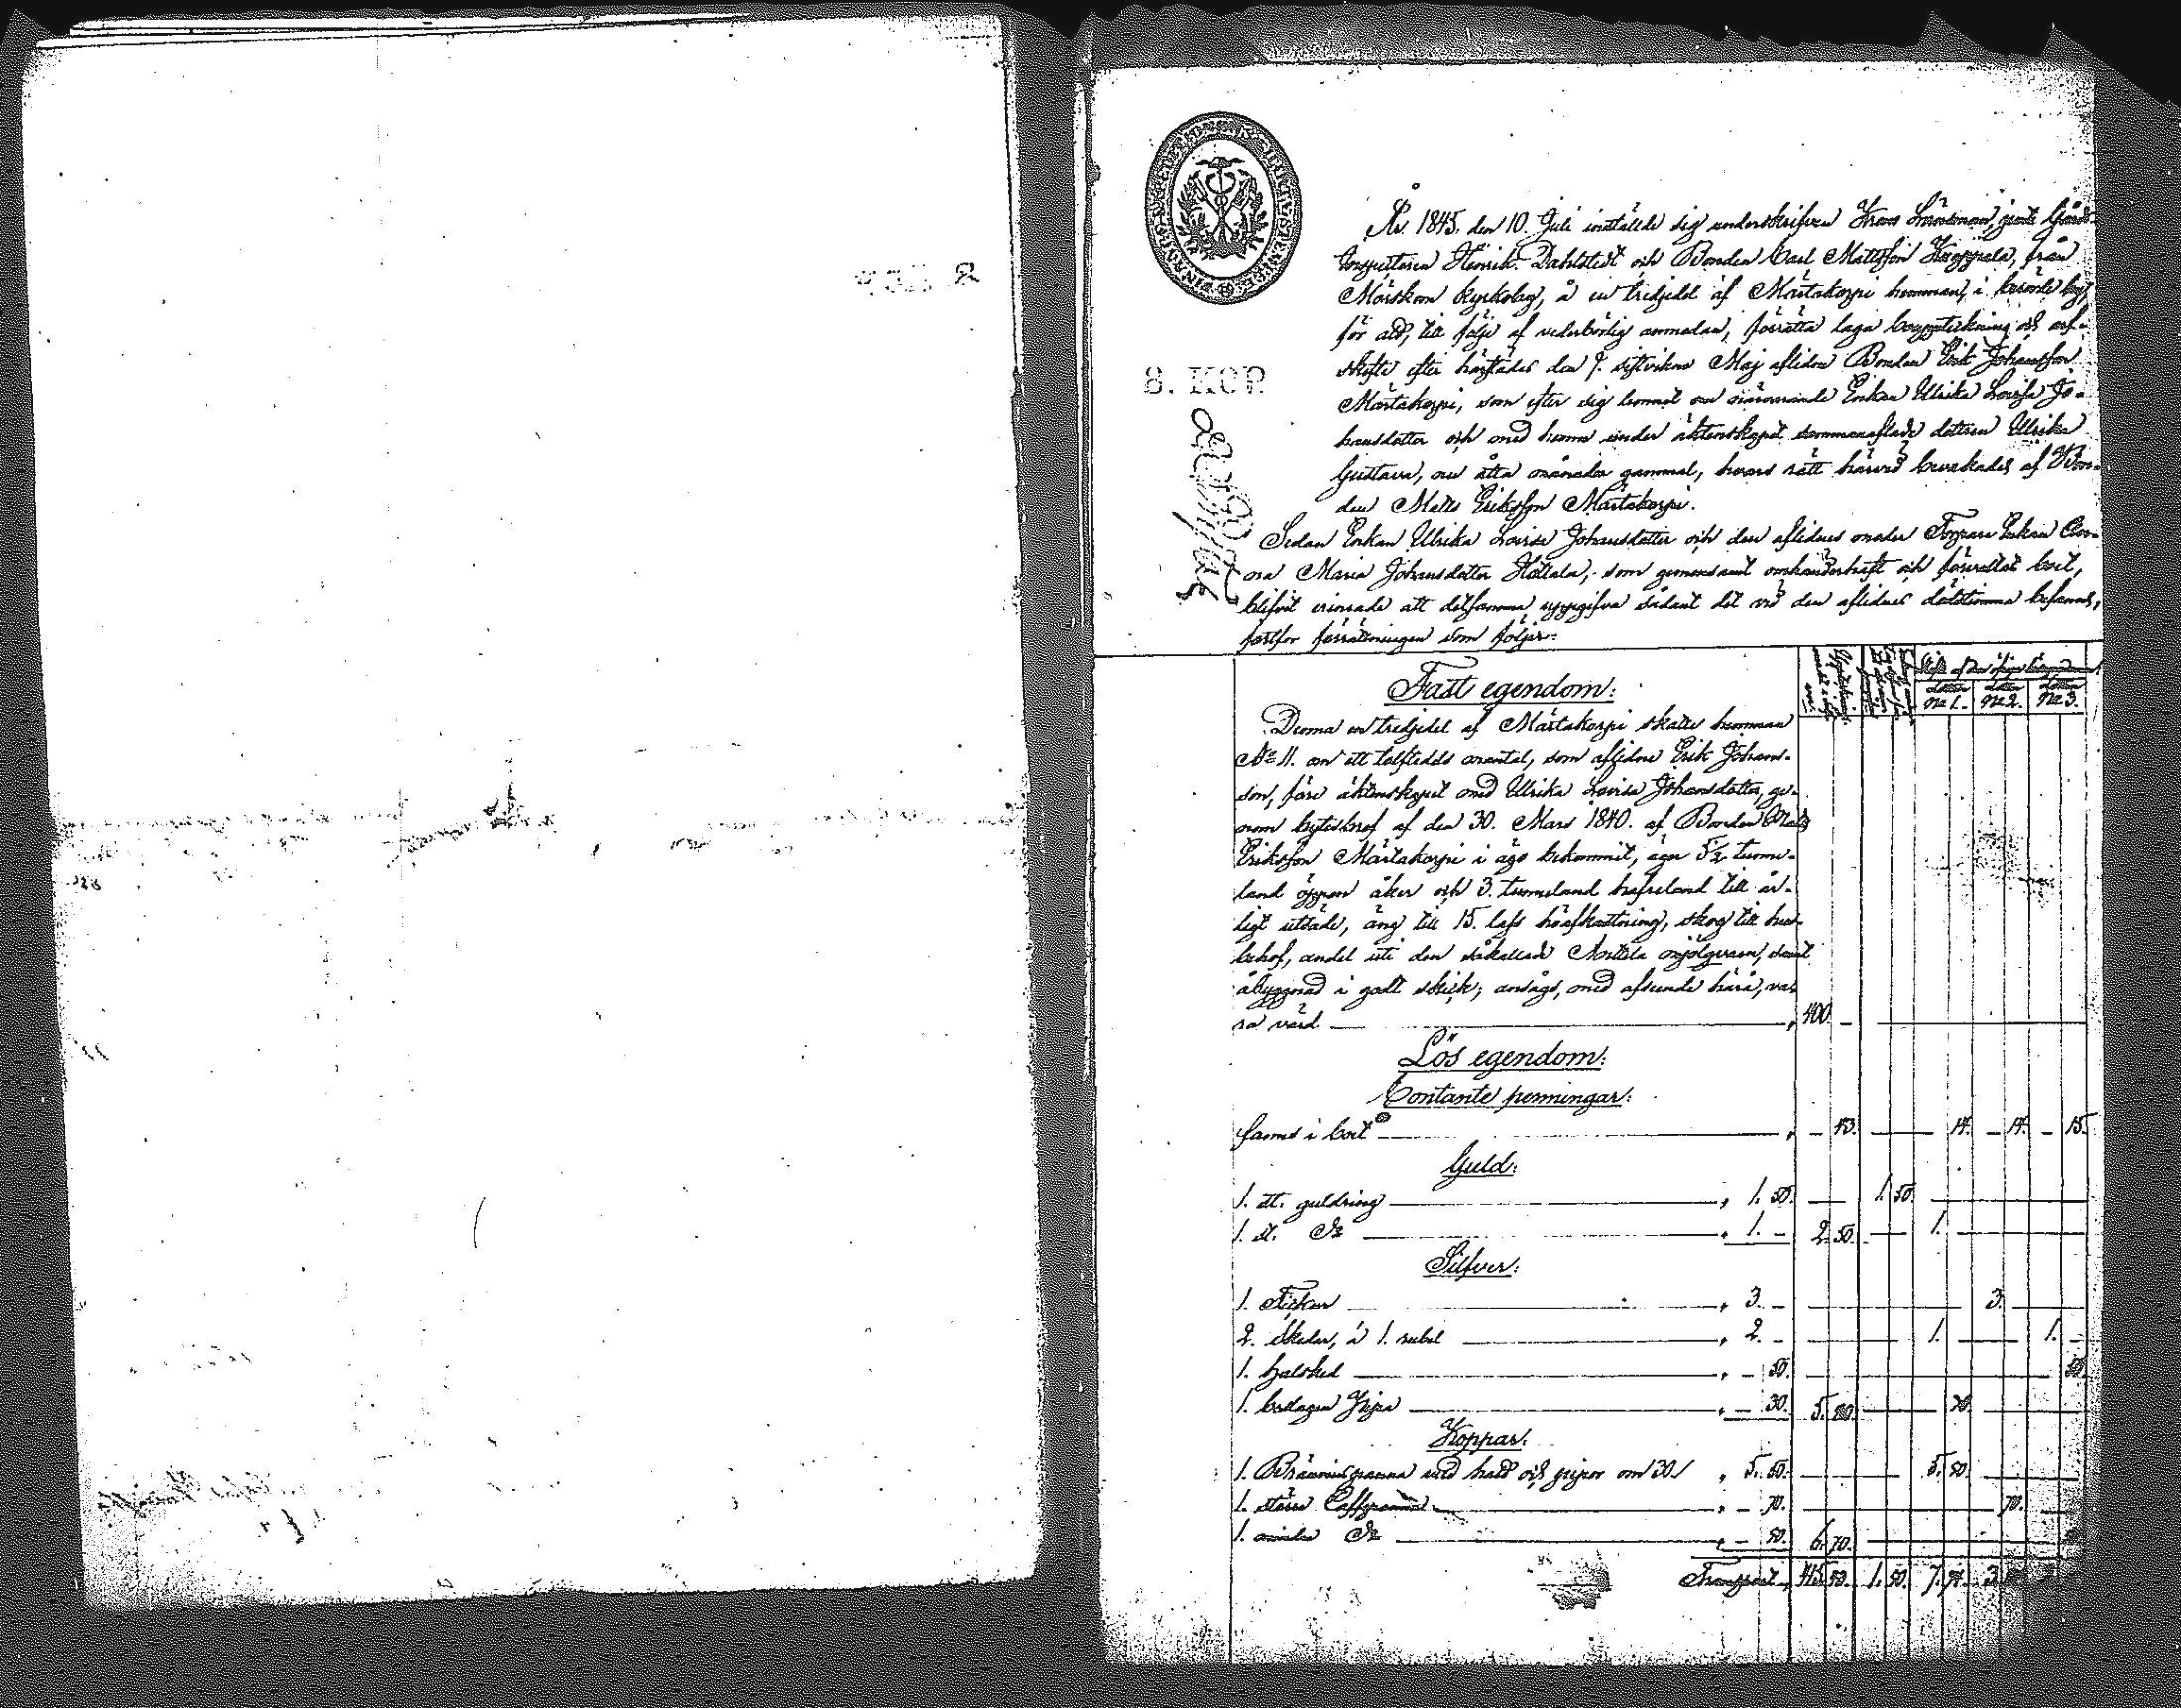 8. KOP.
År 1845. den 10. Juli inställde sig underskrifven Krono Länsman, jemte Gårds
Inspectoren Henrik Dahlstedt och Bonden Carl Mattsson Hagpela, från
Mörskom kyrkoby, å en tredjedel af Märtakorpi hemman, i by,
för att, till följe af vederbörlig anmodan, förrätta laga bouppteckning och arf-
skifte efter härstädes den 7. sistvikne Maj aflidne Bonden Erik Johansson
Märtakorpi, som efter sig lemnat nu närvarande Enkan Ulrika Lovisa Jo-
hansdotter och med henne under äktenskapet sammanaflade dottren Ulrika
Gustava, nu åtta månader gammal, hvars rätt härvid bevakades af Bon-
den Matts Eriksson Märtakorpi.
Sedan Enkan Ulrika Lovisa Johansdotter och den aflidnes moder Torpare Enkan
Maria Johansdotter Hottala, som gemensamt omhänderhaft och förvaltat boet,
blifvit erinrade att detsamma uppgifva sådant det vid den aflidnes dödstimma befanns,
fortfor förrättningen som följer:
Fast egendom:
N:o 1. N:o 2. N:o 3.
Denna en tredjedel af Märtakorpi skatte hemman
N:o 11. om ett tolftedels mantal, som aflidne Erik Johans-
son, före äktenskapet med Ulrika Lovisa Johansdotter, ge-
nom bytesbref af den 30. Mars 1840. af Bonden Matts
Eriksson Märtakorpi i ägo bekommit, äger 5 1/2 tunne-
land öppen åker och 3. tunneland hafreland till år-
ligt utsäde, äng till 15. lass höafkastning, skog till hus-
behof, andel uti den såkallade Anttila mjölqvarn, samt
åbyggnad i godt skick; ansågs, med afseende härå, va-
ra värd 400. –
Lös egendom:
Contante penningar:
fanns i boet – 43. 14. – 14. – 15.
Guld:
1. st. guldring 1. 50. 1. 50.
1. st. D:o 1. – 2. 50. 1.
Silfver:
1. Fickur 3. – 3.
2. skedar, á 1. rubel 2. – 1. 1. –
1. halsked – 50. 50.
1. beslagen Pipa – 30. 5. 80. 30.
Koppar:
1. Bränvinspanna med hatt och pipor om 30. 5. 50. 5. 50.
1. större Caffepanna – 70. 70.
1. mindre D:o – 50. 6. 70.
Transport 415. 43. 1. 50. 7. 94. 3.